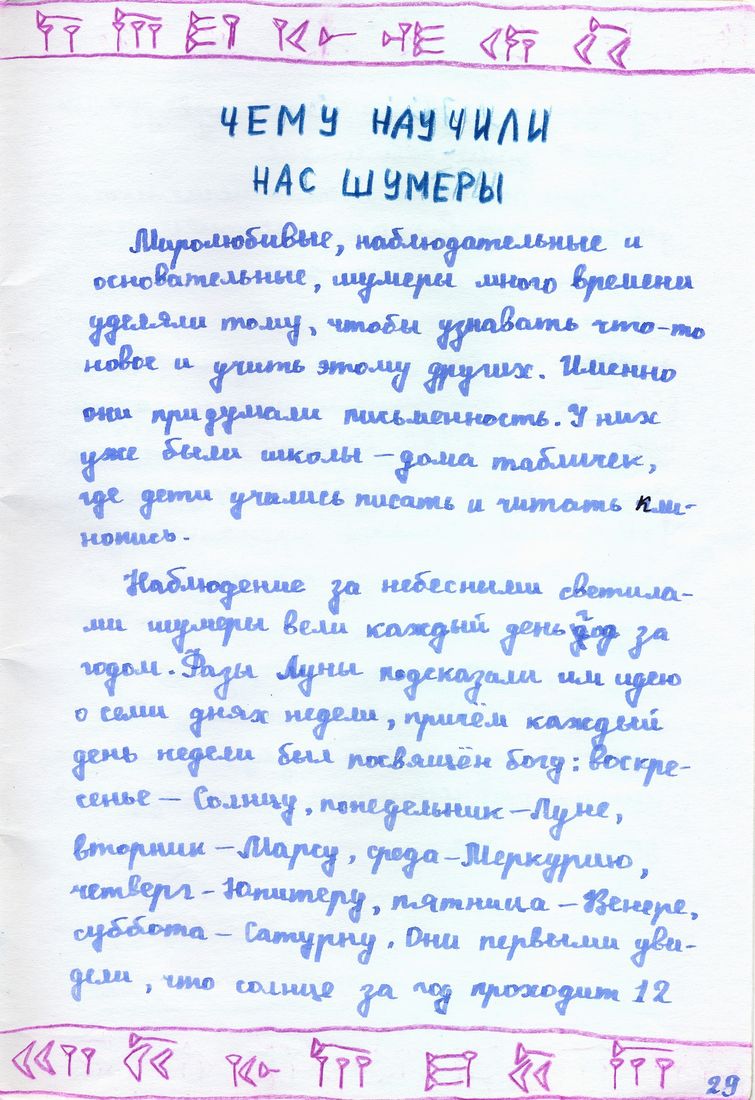 ЧЕМУ НАУЧИЛИ
НАС ШУМЕРЫ
Миролюбивые, наблюдательные и
основательные, шумеры много времени
уделяли тому, чтобы узнавать что-то
новое и учить этому других. Именно
они придумали письменность. У них
уже были школы – дома табличек,
где дети учились писать и читать кли-
нопись.
Наблюдение за небесными светила-
ми шумеры вели каждый день год за
годом. Фазы Луны подсказали им идею
о семи днях недели, причём каждый
день недели был посвящён богу: воскре-
сенье – Солнцу, понедельник – Луне,
вторник – Марсу, среда – Меркурию,
четверг – Юпитеру, пятница – Венере,
суббота – Сатурну. Они первыми уви-
дели, что солнце за год проходит 12
29